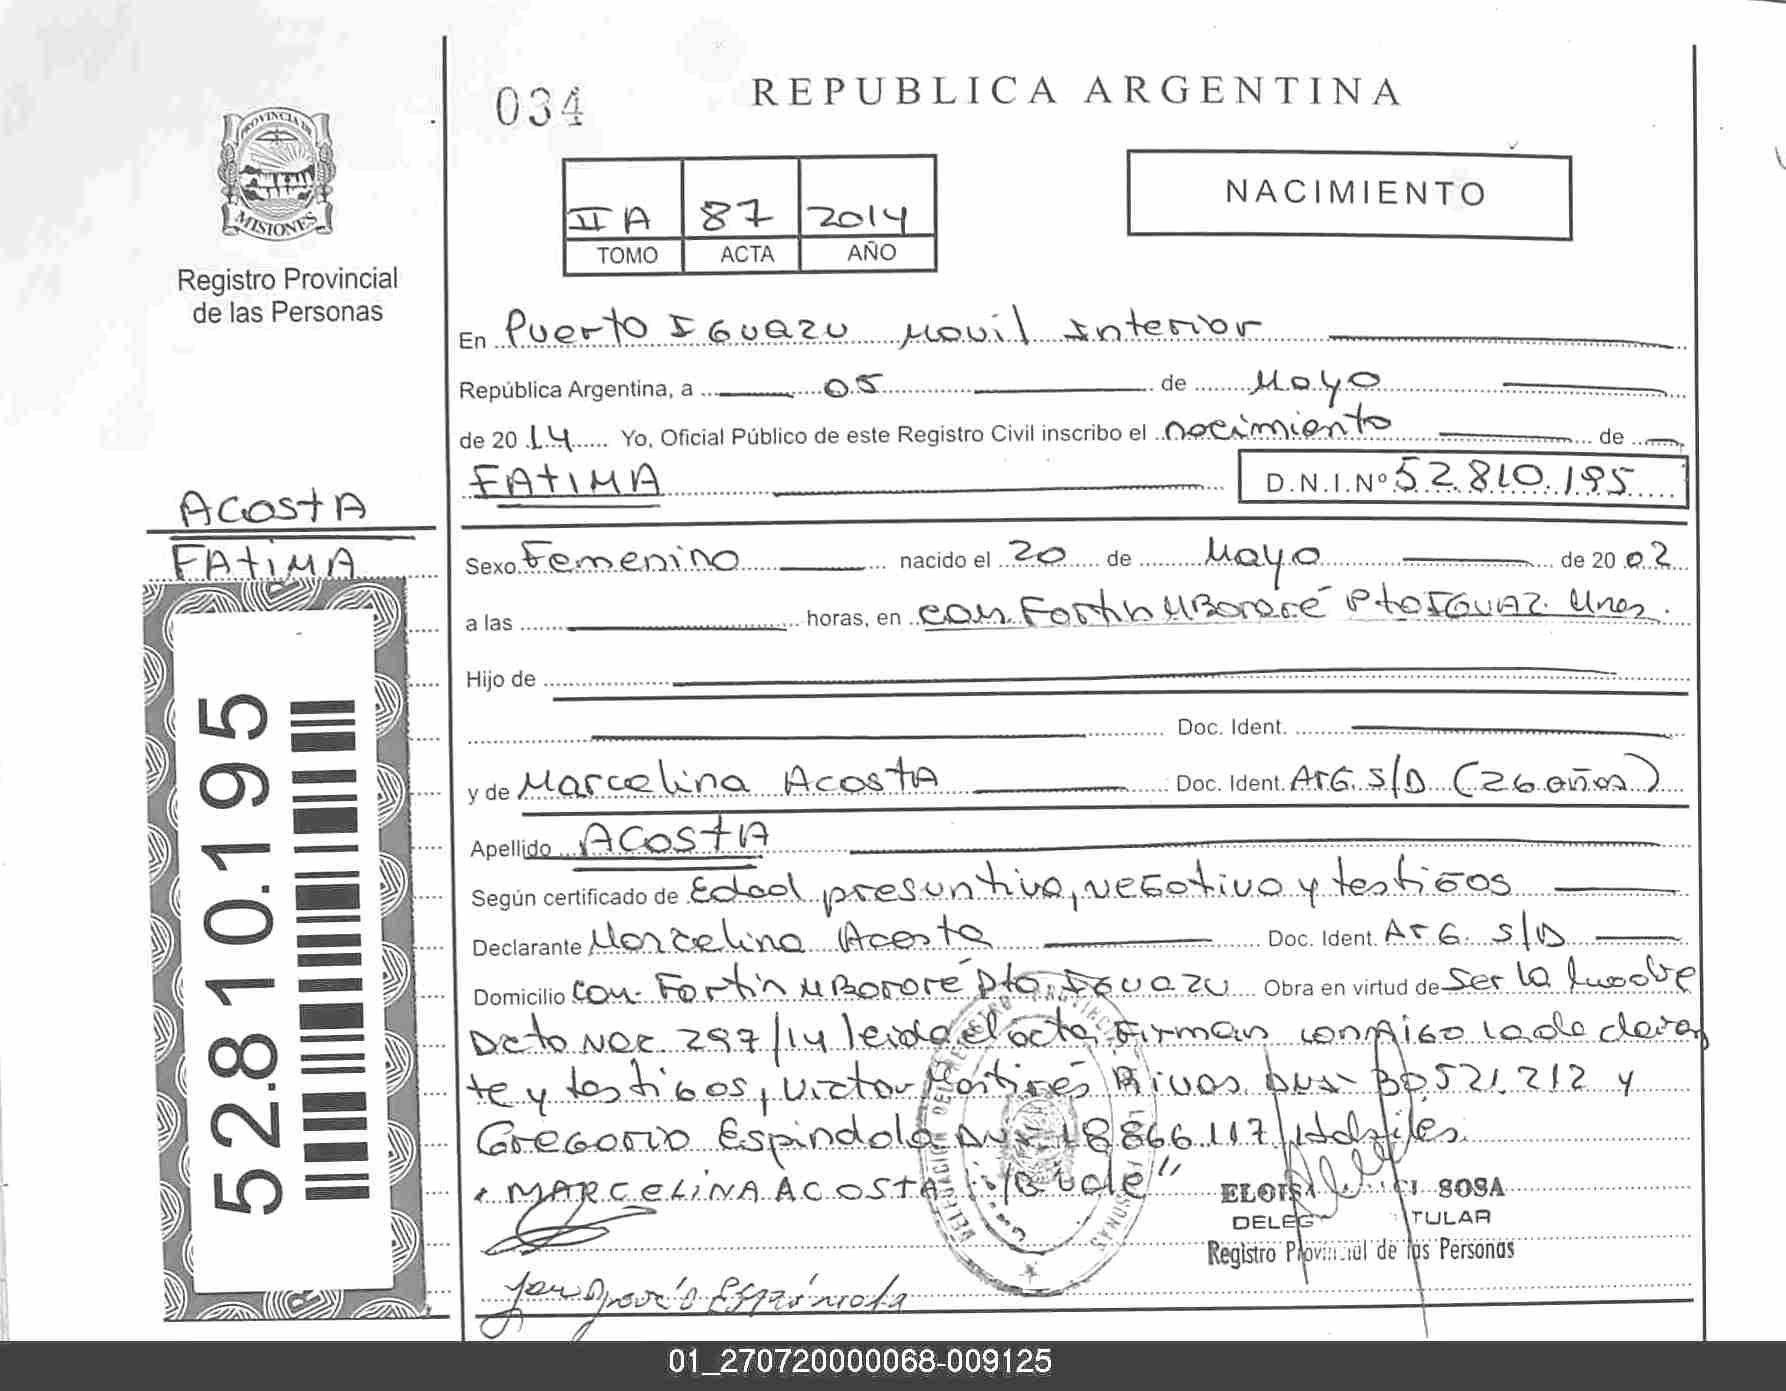 PROVINCIA DE
MISIONES
Registro Provincial
de las Personas
034
REPUBLICA ARGENTINA
NACIMIENTO
II A 87 2014
TOMO ACTA AÑO
En Puerto Iguazu Movil Interior
República Argentina, a 05 de Mayo
de 2014 Yo, Oficial Público de este Registro Civil inscribo el nacimiento de
FATIMA D.N.I.Nº 52.810.195
ACOSTA
FATIMA
52.810.195
Sexo Femenino nacido el 20 de Mayo de 2002
a las horas, en com. Fortin MBororé Pto IGUAZ. Mnes.
Hijo de
Doc. Ident.
y de Marcelina Acosta Doc. Ident. ArG. S/D (26 años)
Apellido ACOSTA
Según certificado de Edad presuntiva, negativo y testigos
Declarante Marcelina Acosta Doc. Ident. ArG. S/D
Domicilio com. Fortin MBororé Pto. Iguazu Obra en virtud de Ser la madre
Dcto Nac. 297/14 leida el acta firman conmigo la declaran
te y testigos, Victor Rivas DNI 30521.212 y
Gregorio Espindola DNI 18866.117 Habiles.
MARCELINA ACOSTA "Vale"
ELOISA SOSA
DELEG TULAR
Registro Provincial de las Personas
Espíndola
01_270720000068-009125